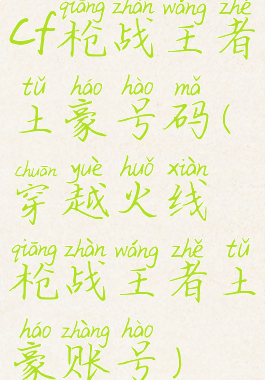 qiāng zhàn wáng zhě
cf枪战王者
tǔ háo hào mǎ
土豪号码(
chuān yuè huǒ xiàn
穿越火线
qiāng zhàn wáng zhě tǔ
枪战王者土
háo zhàng hào
豪账号)